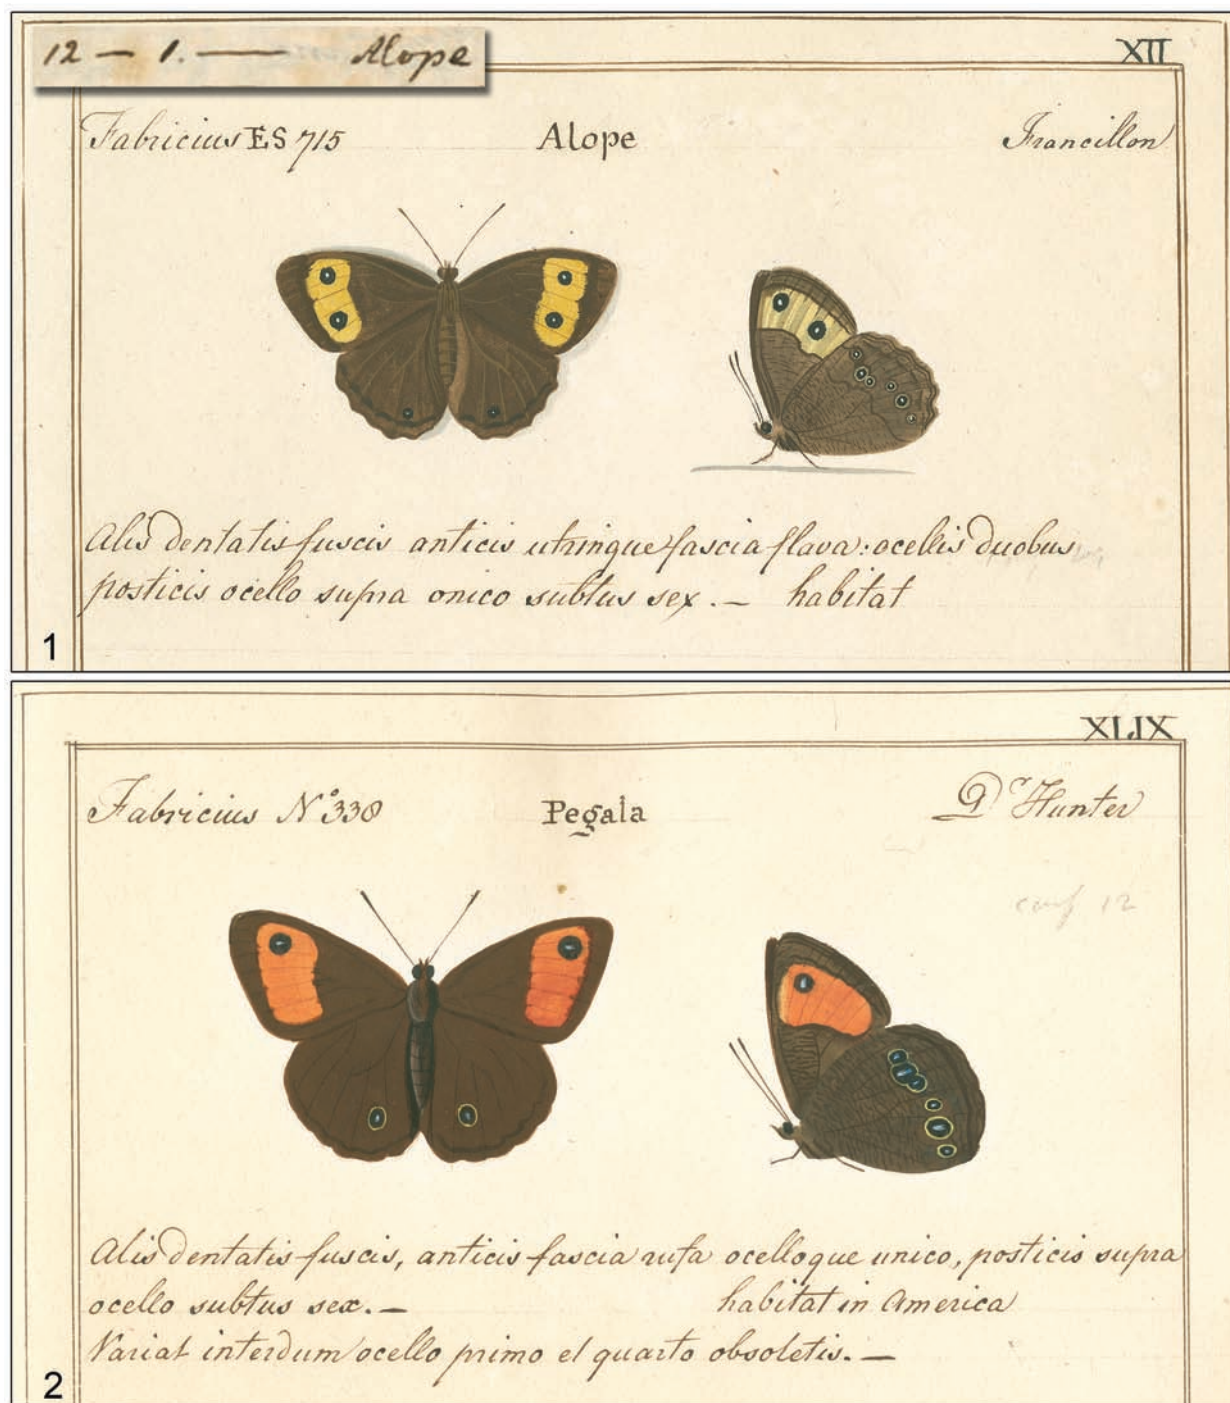 12 — 1. —— Alope
XII
Fabricius ES 715 Alope Francillon
Alis dentatis fuscis anticis utrinque fascia flava: ocellis duobus
posticis ocello supra onico subtus sex. — habitat
1
XLIX
Fabricius No. 338 Pegala Dr Hunter
conf 12
Alis dentatis fuscis, anticis fascia rufa ocelloque unico, posticis supra
ocello subtus sex. — habitat in America
Variat interdum ocello primo et quarto obsoletis. —
2